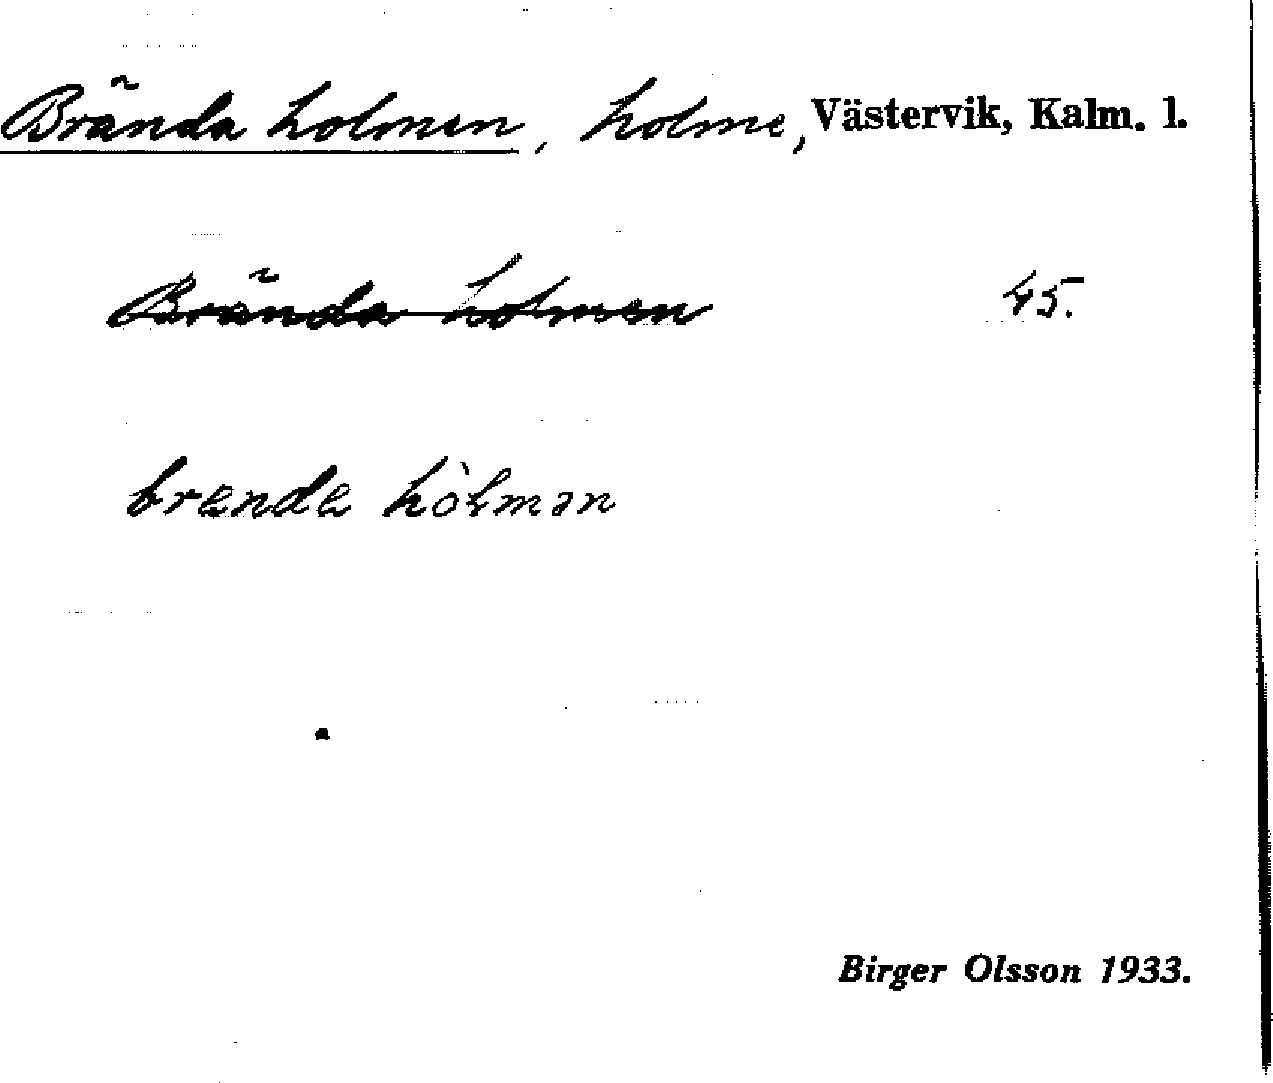 Brända holmen, holme, Västervik, Kalm. l.
Brända holmen 45.
brenda hòlmən
Birger Olsson 1933.